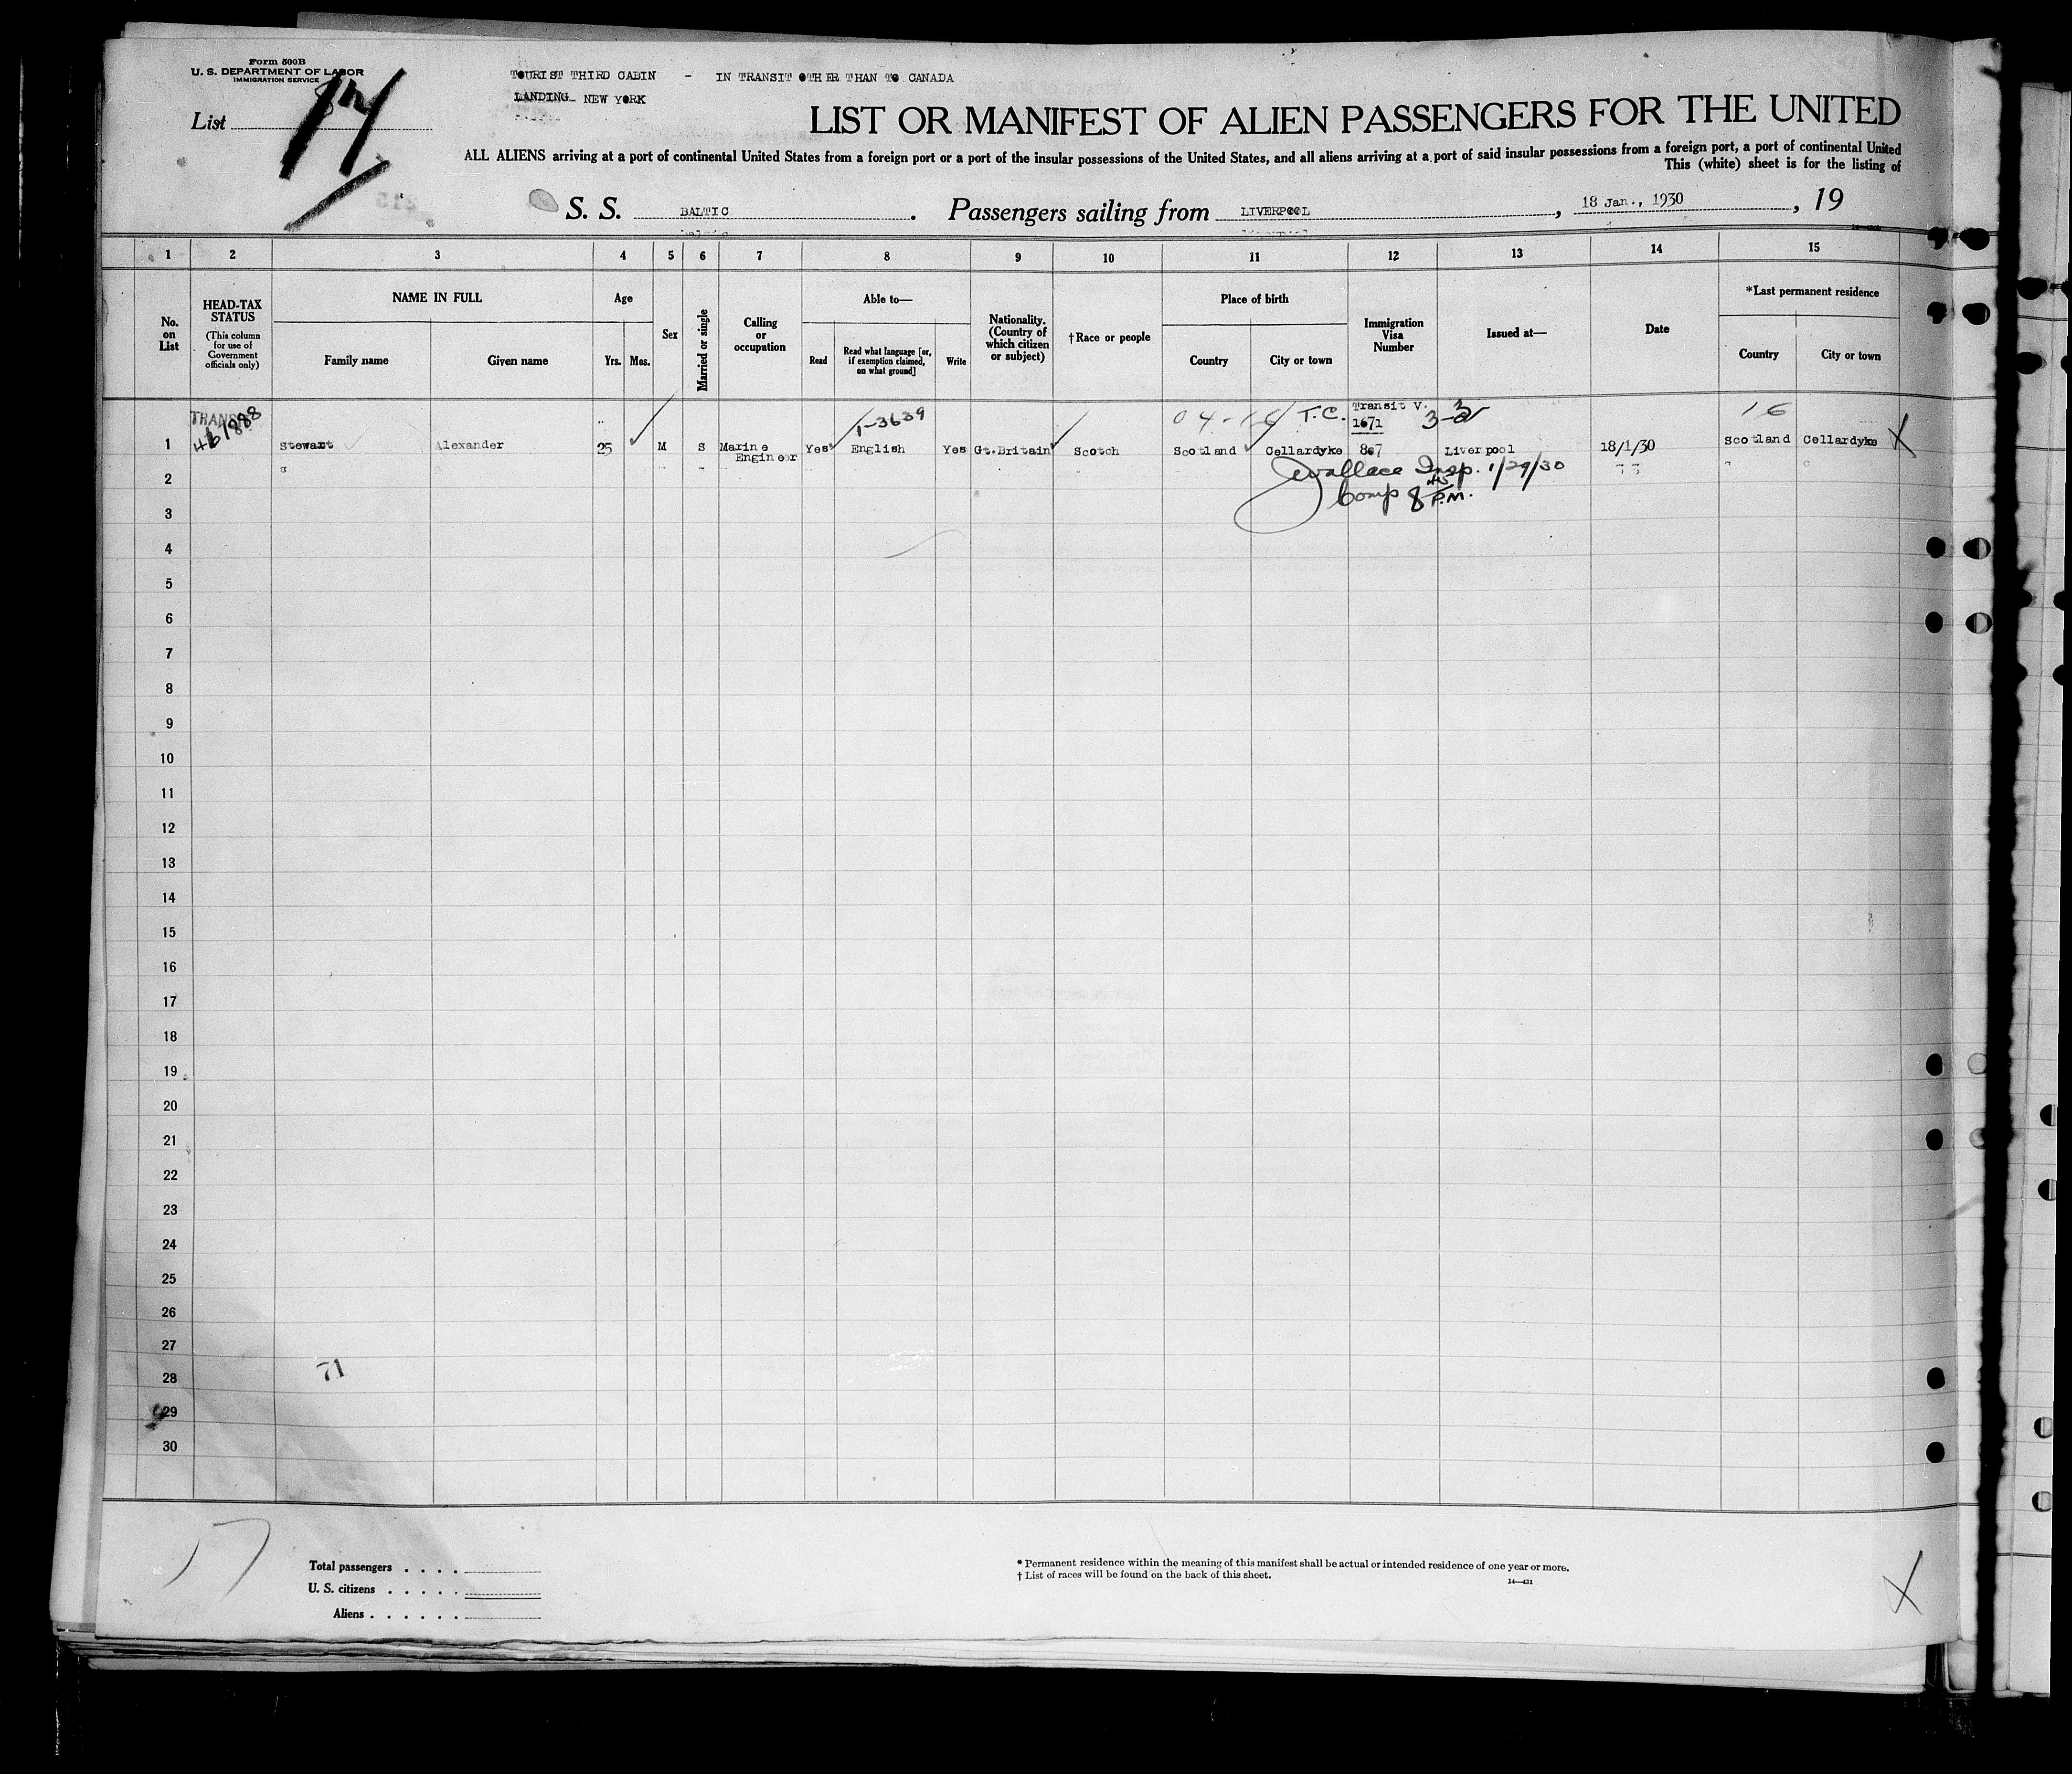 Form 500B
U. S. DEPARTMENT OF LABOR
IMMIGRATION SERVICE
List
TOURIST THIRD CABIN - IN TRANSIT OTHER THAN TO CANADA
LANDING NEW YORK
LIST OR MANIFEST OF ALIEN PASSENGERS FOR THE UNITED
ALL ALIENS arriving at a port of continental United States from a foreign port or a port of the insular possessions of the United States, and all aliens arriving at a port of said insular possessions from a foreign port, a port of continental United
This (white) sheet is for the listing of
S. S. BALTIC . Passengers sailing from LIVERPOOL , 18 Jan., 1930 , 19
1 2 3 4 5 6 7 8 9 10 11 12 13 14 15
No. on List
HEAD-TAX STATUS
(This column for use of Government officials only)
NAME IN FULL
Family name Given name
Age
Yrs. Mos.
Sex
Married or single
Calling or occupation
Able to—
Read
Read what language [or, if exemption claimed, on what ground]
Write
Nationality. (Country of which citizen or subject)
†Race or people
Place of birth
Country City or town
Immigration Visa Number
Issued at—
Date
*Last permanent residence
Country City or town
1-3639 T.C. Transit V. 3-2 16
1671
1 Stewart Alexander 25 M S Marine Engineer Yes English Yes Gt.Britain Scotch Scotland Cellardyke 807 Liverpool 18/1/30 Scotland Cellardyke X
Wallace Insp. 1/29/30
2
Comp 8 P.M.
3
4
5
6
7
8
9
10
11
12
13
14
15
16
17
18
19
20
21
22
23
24
25
26
27
71
28
29
30
17
Total passengers
U. S. citizens
Aliens
* Permanent residence within the meaning of this manifest shall be actual or intended residence of one year or more.
† List of races will be found on the back of this sheet.
14—431
X